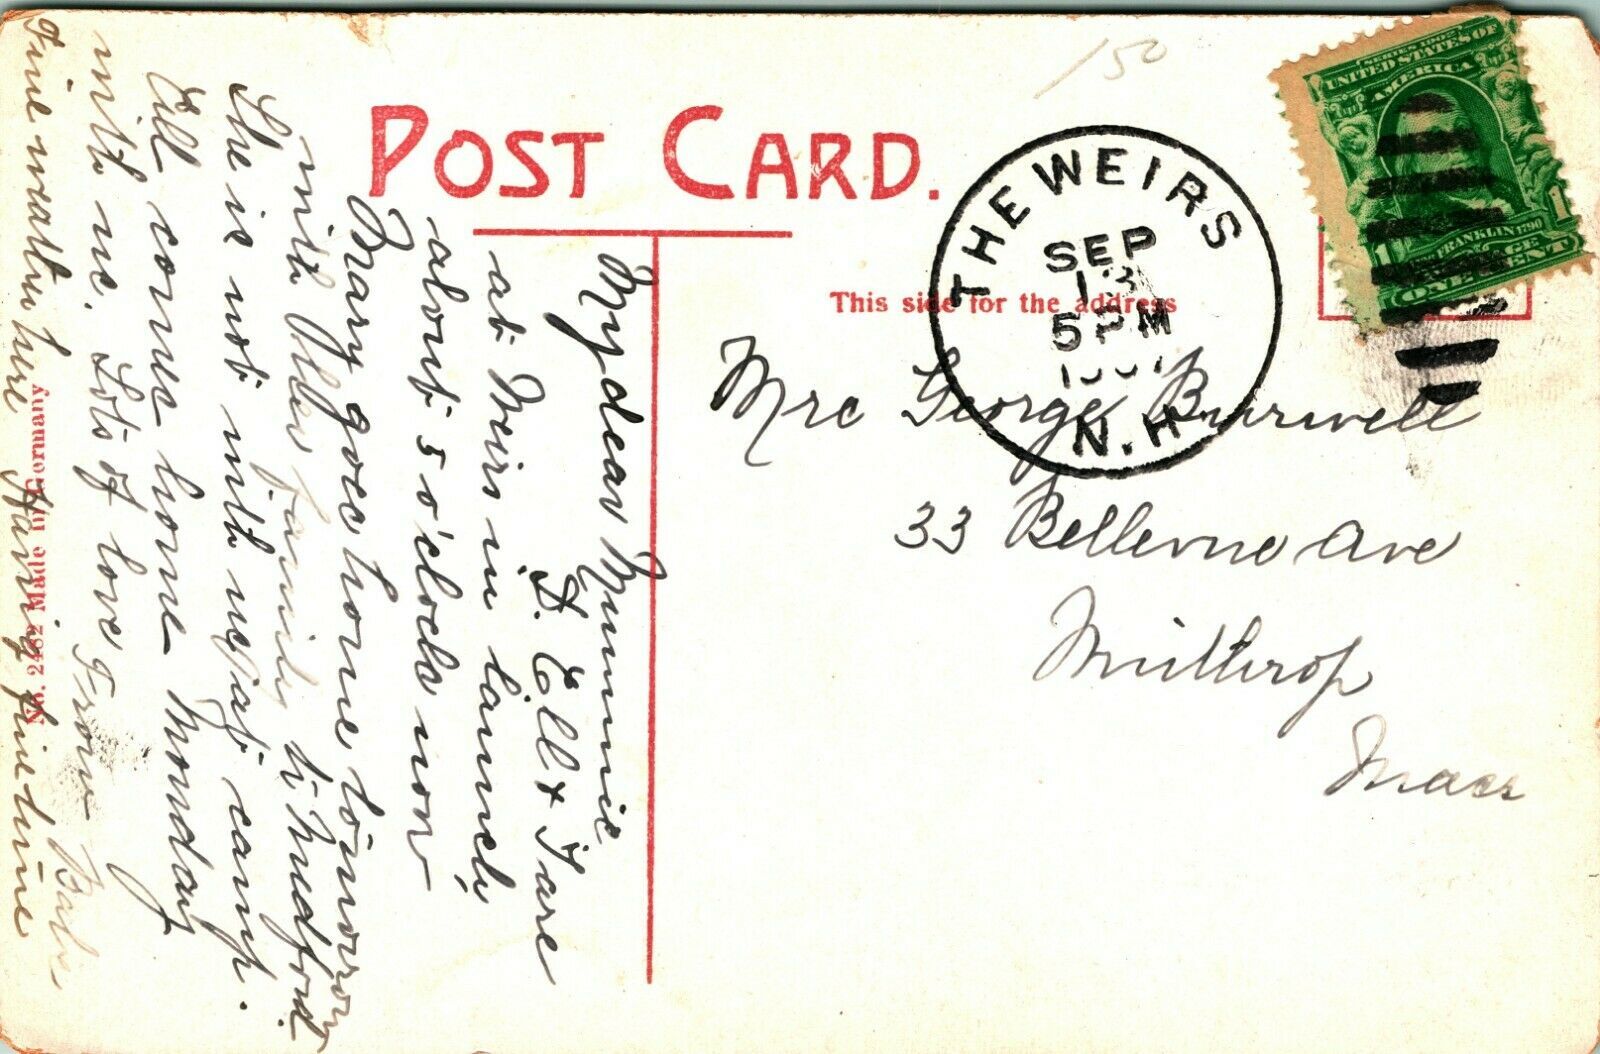 150
POST CARD.
This side for the address
THE WEIRS
SEP
13
5 PM
N.H.
SERIES 1902
UNITED STATES OF
AMERICA
1
1
FRANKLIN 1790
ONE CENT
Mrs George Burwell
33 Bellevue Ave
Winthrop
Mass
My dear Mummie
D. Ell & I are
at Weirs in launch
about 5 o'clock now
Mary goes home to morrow
with Ober family to Medford
She is not with us at camp.
Ell comes home Monday
with me. Lots of love From Babe
Fine weather here Having fine time
No. 2482 Made in Germany